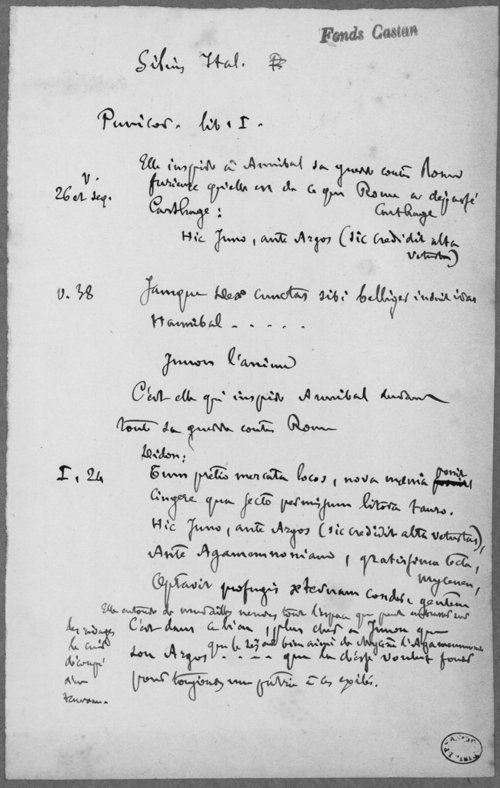 Fonds Castan
Silius Ital.
Punicor. lib. I.
Elle inspire à Annibal sa guerre contre Rome
v. 26 et seq.
furieuse qu'elle est de ce que Rome a dépassé
Carthage :
Carthage
Hic Juno, ante Argos (sic credidit alta
vetustas)
v. 38
Jamque deae cunctas sibi belliger induit iras
Hannibal . . . . .
Junon l'anime
C'est elle qui inspire Annibal durant
toute sa guerre contre Rome
Didon :
I, 24
Cum pretio mercata locos, nova mœnia ponit,
Cingere qua secto permissum litora tauro.
Hic Juno, ante Argos (sic credidit alta vetustas),
Ante Agamemnoniam, gratissima tecta,
Mycenen,
Optavit profugis æternam condere gentem
Elle entoure de murailles neuves tout l'espace que peut
les rivages
le cuir
découpé
d'un
taureau.
C'est dans ce lieu, plus cher à Junon que
son Argos . . . . que la déesse voulut fonder
que le séjour bien aimé de Mycène l'Agamemnonienne
pour toujours une patrie à ces exilés.